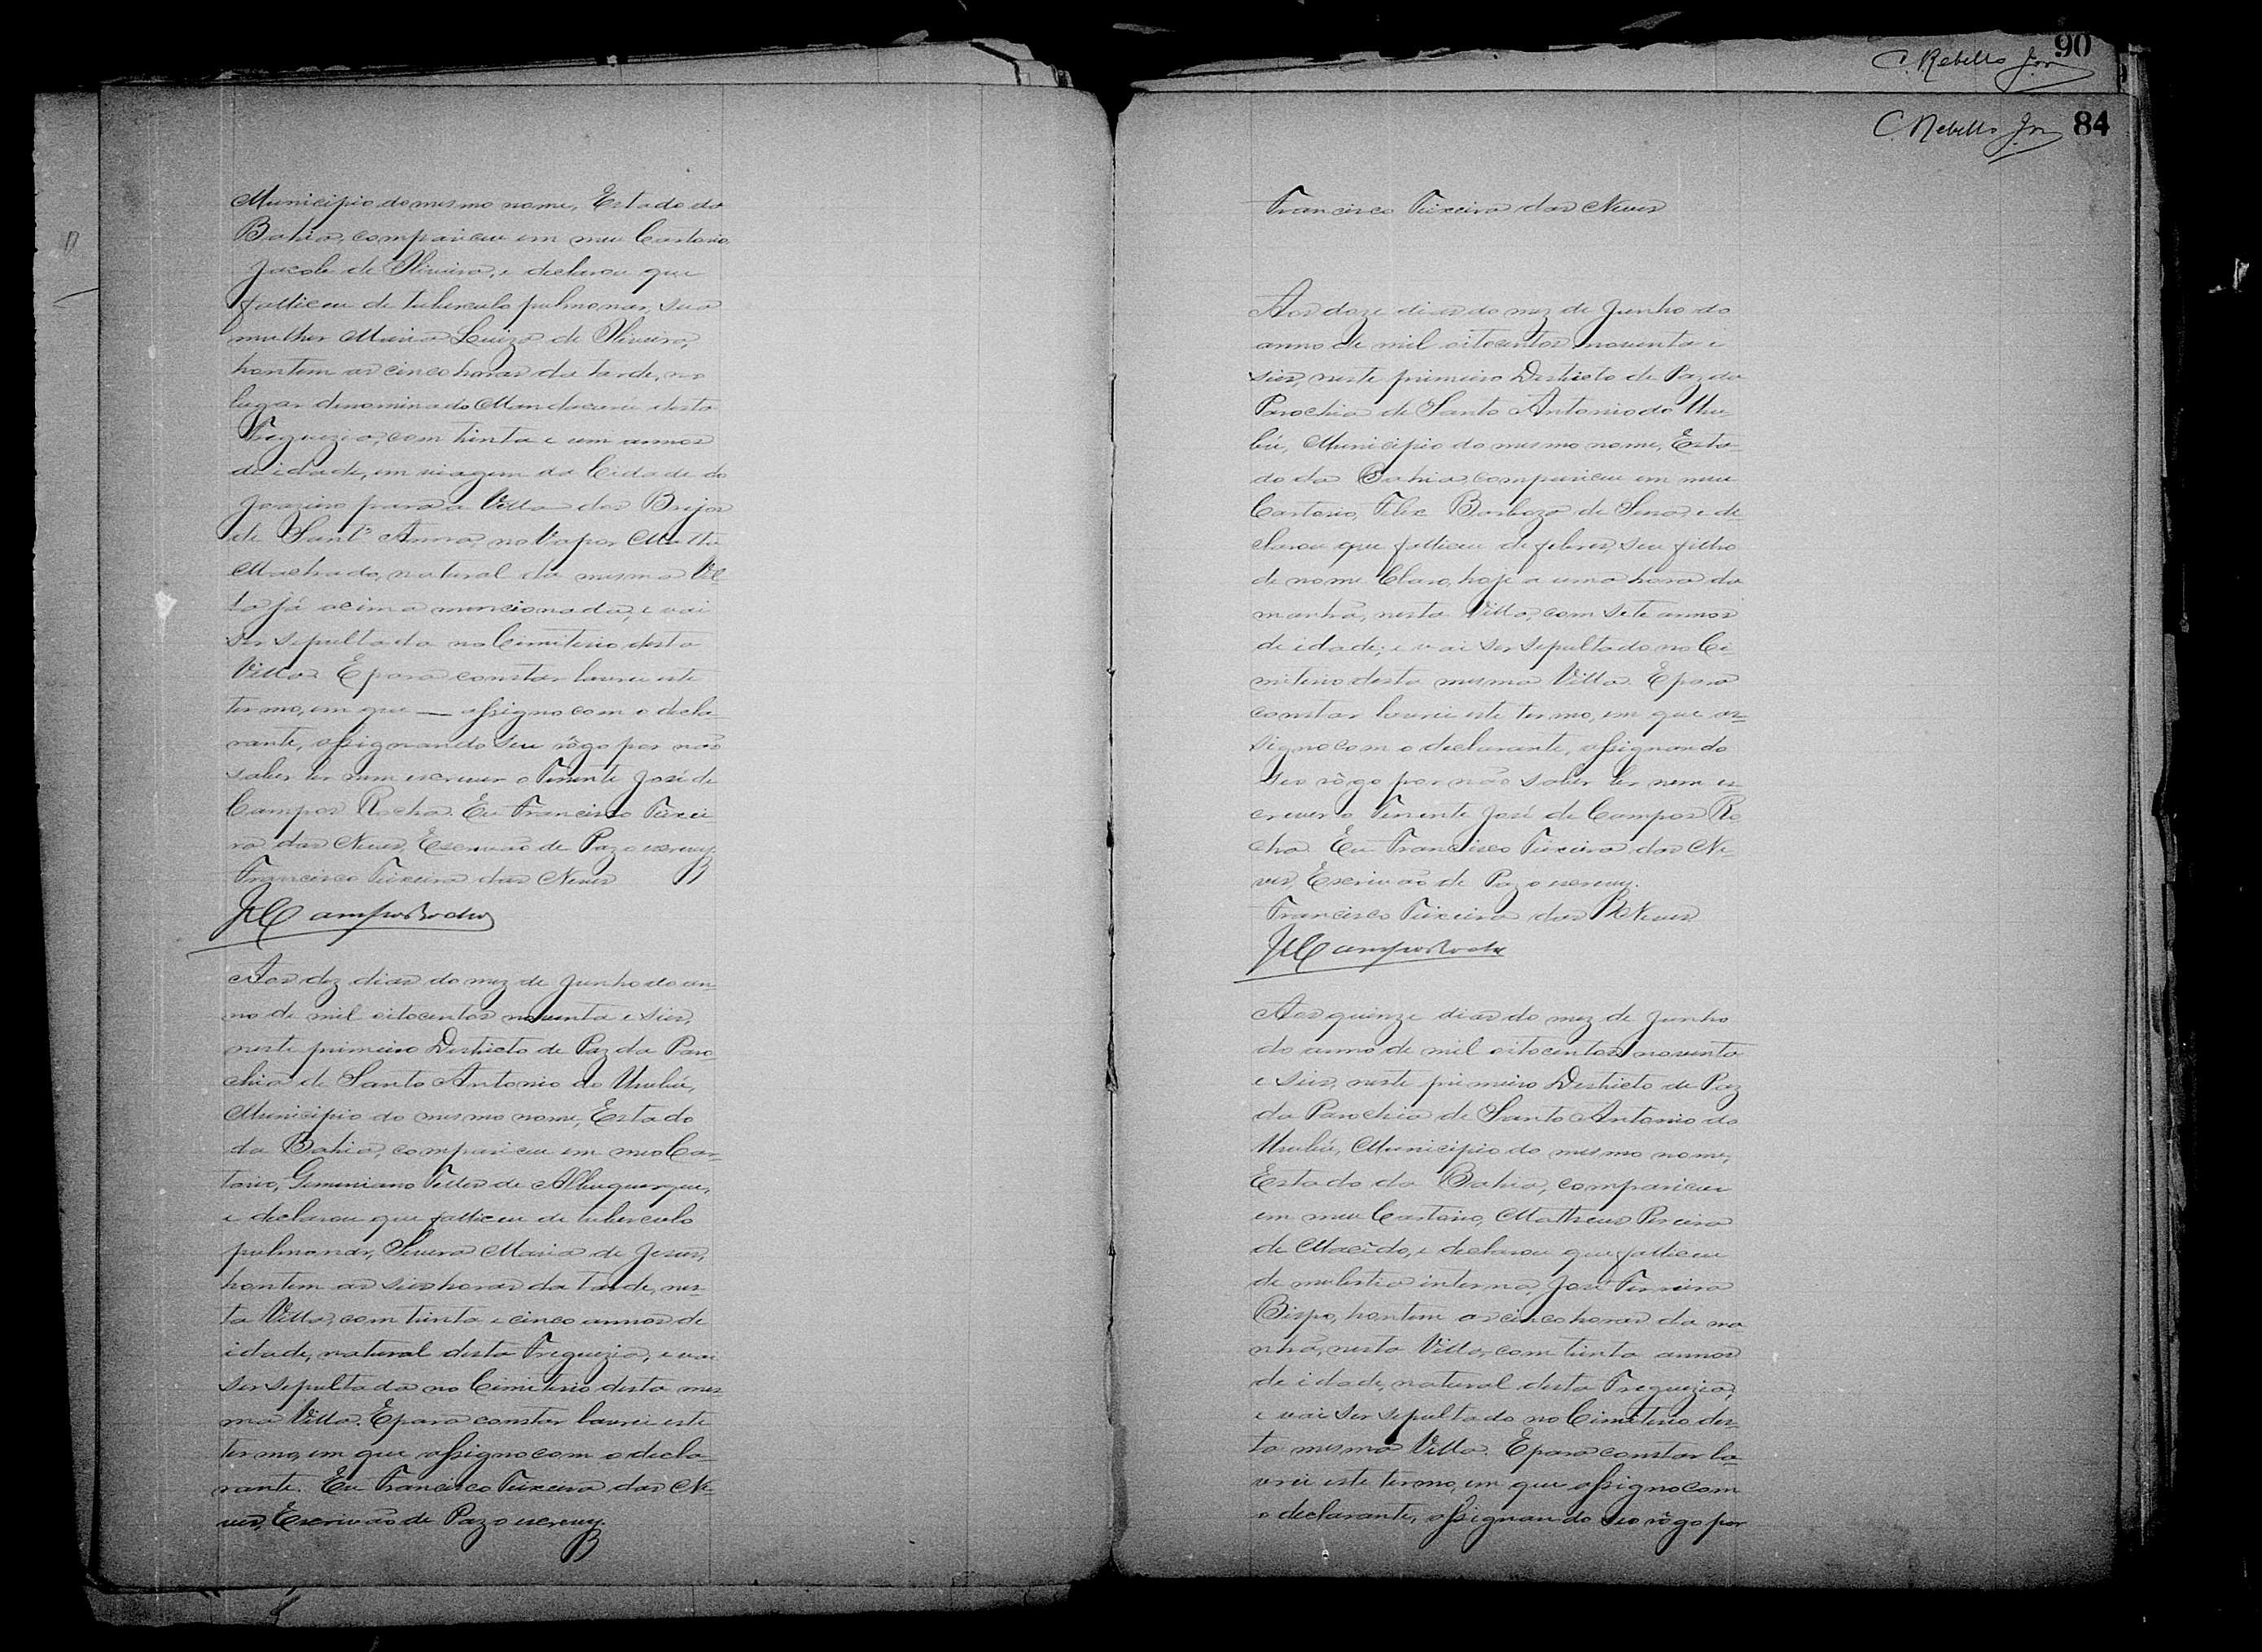 Municipio do mesmo nome, Estado da
Bahia, compareceu em meu Cartorio
Jacob de Oliveira, e declarou que
falleceu de tuberculo pulmonar, sua
mulher Maria Luiza de Oliveira,
hontem as cinco horas da tarde, no
lugar denominado Mandacarú desta
Freguezia, com trinta e um annos
de idade, em viagem da Cidade do
Joazeiro para a Villa dos Brejos
de Sant'Anna, no Vapor Matta
Machado, natural da mesma Vil
la já acima mencionada, e vai
ser sepultada no Cimiterio desta
Villa. E para constar lavrei este
termo, em que — assigno com o decla-
rante, assignando seu rôgo por não
saber ler nem escrever o Tenente José de
Campos Rocha. Eu Francisco Teixei-
ra das Neves, Escrivão de Paz o escrevy.
Francisco Teixeira das Neves
JCCamposRocha
Aos dez dias do mez de Junho do an-
no de mil oitocentos noventa e seis,
neste primeiro Destricto de Paz da Paro-
chia de Santo Antonio do Urubú,
Municipio do mesmo nome, Estado
da Bahia, compareceu em meo Car-
torio, Geminiano Telles de Albuquerque,
e declarou que falleceu de tuberculo
pulmonar, Severa Maria de Jesus,
hontem as seis horas da tarde, nes-
ta Villa, com trinta e cinco annos de
idade, natural desta Freguezia, e vai
ser sepultada no Cimiterio desta mes
ma Villa. E para constar lavrei este
termo, em que assigno com o decla-
rante. Eu Francisco Teixeira das Ne-
ves, Escrivão de Paz o escrevy.
90
C. Rebello Jor
C. Rebello Jor 84
Francisco Teixeira das Neves
Aos doze dias do mez de Junho do
anno de mil oitocentos noventa e
seis, neste primeiro Destricto de Paz da
Parochia de Santo Antonio do Uru-
bú, Municipio do mesmo nome, Esta-
do da Bahia, compareceu em meu
Cartorio, Felix Barboza de Sena, e de-
clarou que falleceu de febres, seu filho
de nome Claro, hoje a uma hora da
manhã, nesta Villa, com sete annos
de idade; e vai ser sepultado no Ci-
miterio desta mesma Villa. E para
constar lavrei este termo, em que as-
signo com o declarante, assignando
seo rôgo por não saber ler nem es-
crever o Tenente José de Campos Ro
cha. Eu Francisco Teixeira das Ne-
ves, Escrivão de Paz o escrevy.
Francisco Teixeira das Neves
JCCamposRocha
Aos quinze dias do mez de Junho
do anno de mil oitocentos noventa
e seis, neste primeiro Destricto de Paz
da Parochia de Santo Antonio do
Urubú, Municipio do mesmo nome,
Estado da Bahia, compareceu
em meu Cartorio, Matheus Pereira
de Macêdo, e declarou que falleceu
de molestia interna, José Ferreira
Bispo, hontem as cinco horas da ma
nhã, nesta Villa, com trinta annos
de idade, natural desta Freguezia,
e vai ser sepultado no Cimiterio des-
ta mesma Villa. E para constar la-
vrei este termo, em que assigno com
o declarante, assignando seo rôgo por